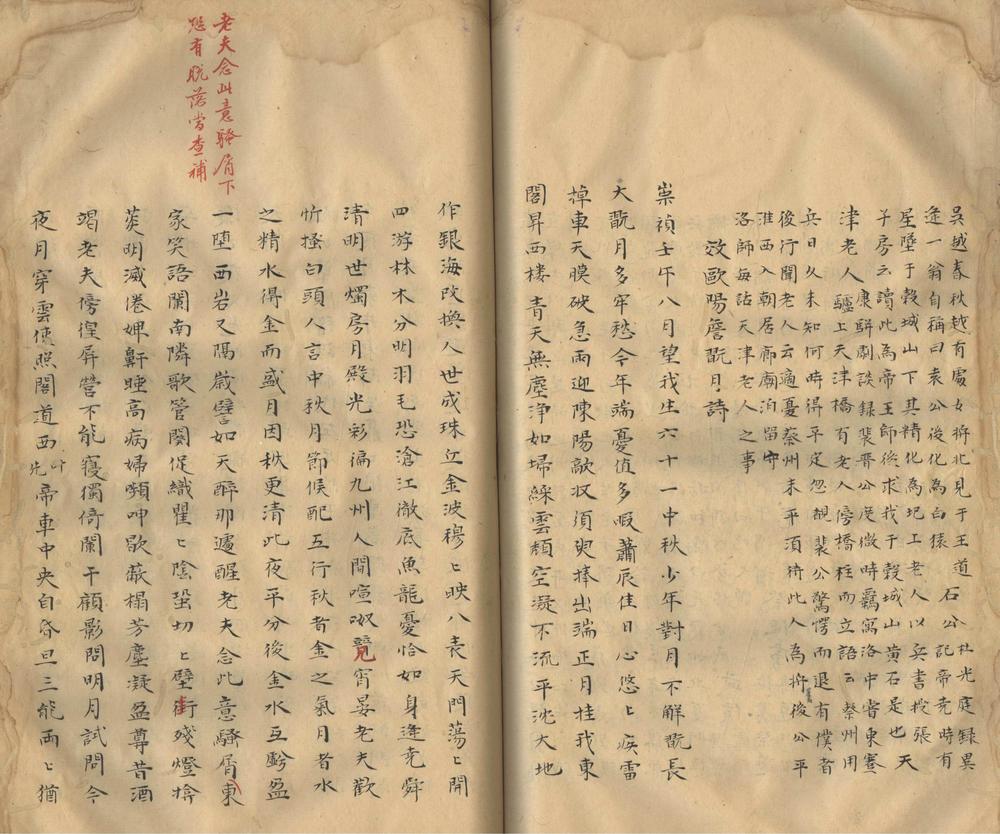 吳越春秋越有處女將北見于王道
逢一翁自稱曰袁公後化為白猿
石公
杜光庭錄異
記帝堯時有
星墜于穀城山下其精化為圯上老人以兵書授張
子房云讀此為帝王師後求我于穀城山黃石是也
天
津老人
康駢劇談錄裴晉公度微時羈寓洛中常乘蹇
驢上天津橋有老人傍橋柱而立語云蔡州用
兵日久未知何時得平定忽覩裴公驚愕而退有僕者
後行聞老人云適憂蔡州未平須待此人為將後公平
淮西入朝居廊廟洎留守
洛師每話天津老人之事
效歐陽詹翫月詩
崇禎壬午八月望我生六十一中秋少年對月不解翫長
大翫月多牢愁今年端憂值多暇蕭辰佳日心悠〻疾雷
掉車天膜破急雨迎陳陽敲收須臾捧出端正月挂我東
閣昇西樓青天無塵淨如埽綵雲頳空凝不流平沈大地
作銀海改換人世成珠丘金波穆〻映八表天門蕩〻開
四游林木分明羽毛恐滄江澈底魚龍憂恰如身逢堯舜
清明世燭房月殿光彩徧九州人間喧呶竟宵晏老夫歡
忻搔白頭人言中秋月節候配互行秋者金之氣月者水
之精水得金而盛月因秋更清此夜平分後金水互虧盈
老夫念此意騷屑下
恐有脫落當查補
一墮西岩又隔歲譬如天醉那遽醒老夫念此意騷屑東
家笑語闌南隣歌管闋促織瞿〻陰蛩切〻壁衘殘燈
莢明滅倦婢鼾睡高病婦嚬呻歇蔽榻芳塵凝盈尊昔酒
竭老夫傍徨屏營不能寢獨倚闌干顧影問明月試問今
夜月穿雲使照閣道西叶先帝車中央自昏旦三能兩〻猶